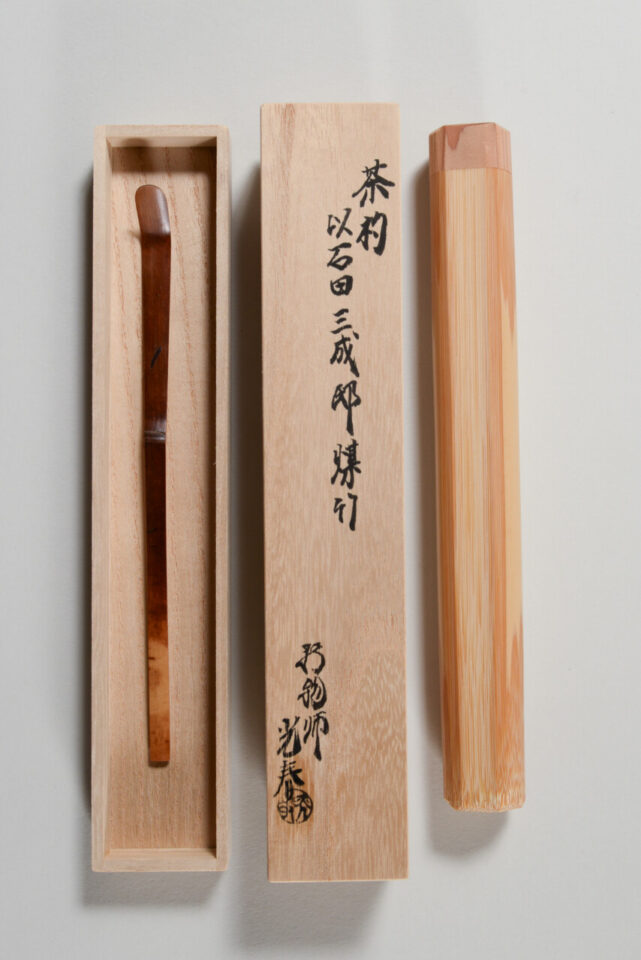 茶杓
以石田三成邸煤竹
竹物师
光春